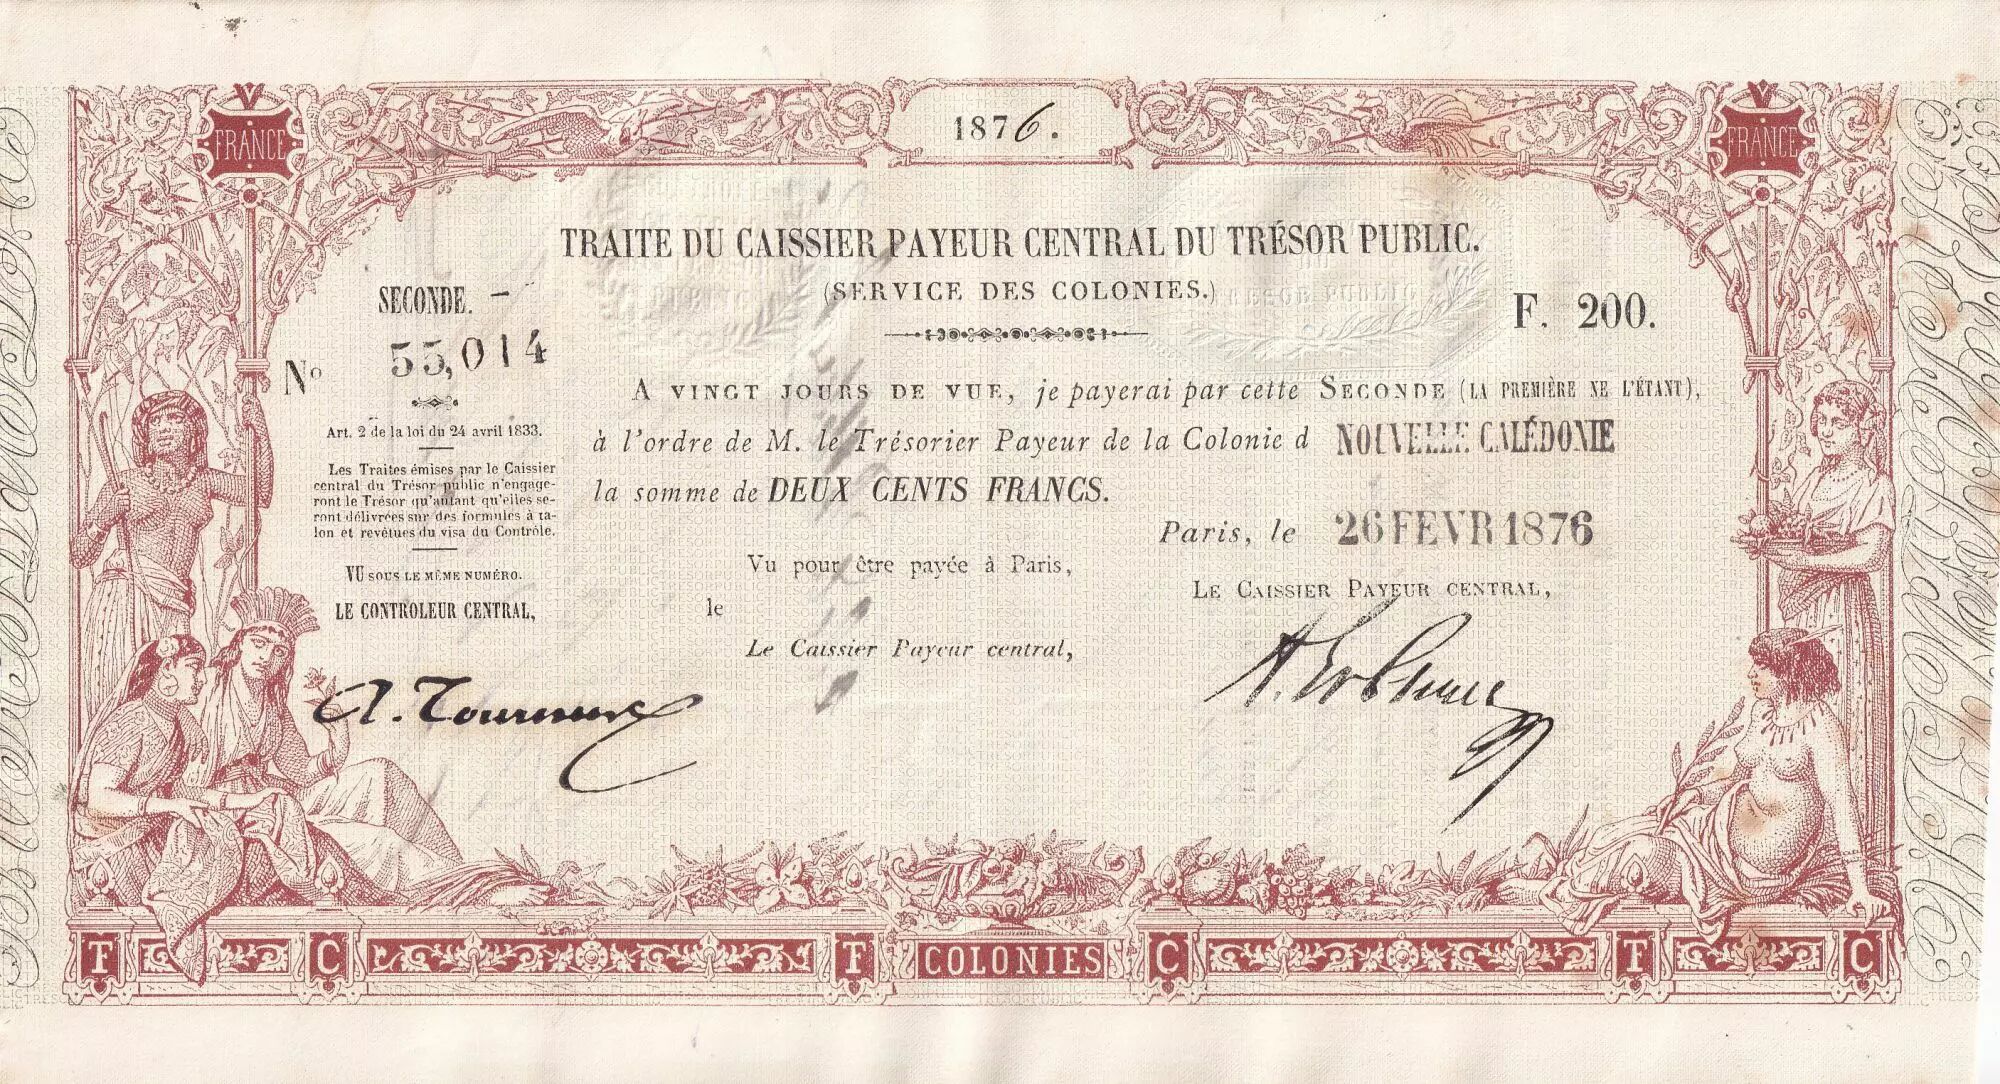 FRANCE
1876.
FRANCE
TRAITE DU CAISSIER PAYEUR CENTRAL DU TRÉSOR PUBLIC.
(SERVICE DES COLONIES.)
SECONDE.
F. 200.
No 55,014
A VINGT JOURS DE VUE, je payerai par cette SECONDE (LA PREMIÈRE NE L'ÉTANT),
à l'ordre de M. le Trésorier Payeur de la Colonie d NOUVELLE CALÉDONIE
la somme de DEUX CENTS FRANCS.
Paris, le 26 FEVR 1876
LE CAISSIER PAYEUR CENTRAL,
Art. 2 de la loi du 24 avril 1833.
Les Traites émises par le Caissier
central du Trésor public n'engage-
ront le Trésor qu'autant qu'elles se-
ront délivrées sur des formules à ta-
lon et revêtues du visa du Contrôle.
VU SOUS LE MÊME NUMÉRO.
LE CONTROLEUR CENTRAL,
Vu pour être payée à Paris,
le
Le Caissier Payeur central,
T C T COLONIES C T C